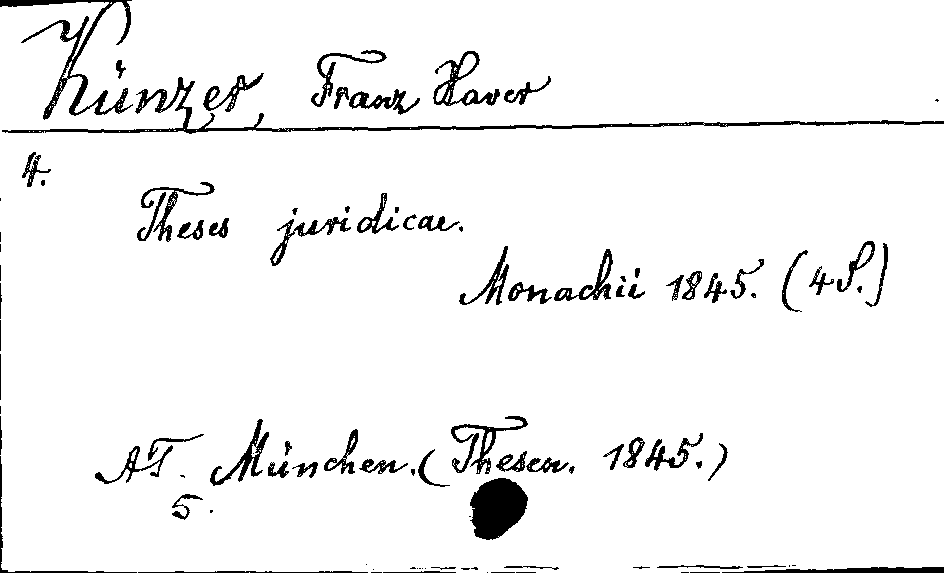 Künzer, Franz Xaver
4.
Theses juridicae.
Monachii 1845. (4 S.)
AT. München. (Thesen. 1845.)
5.